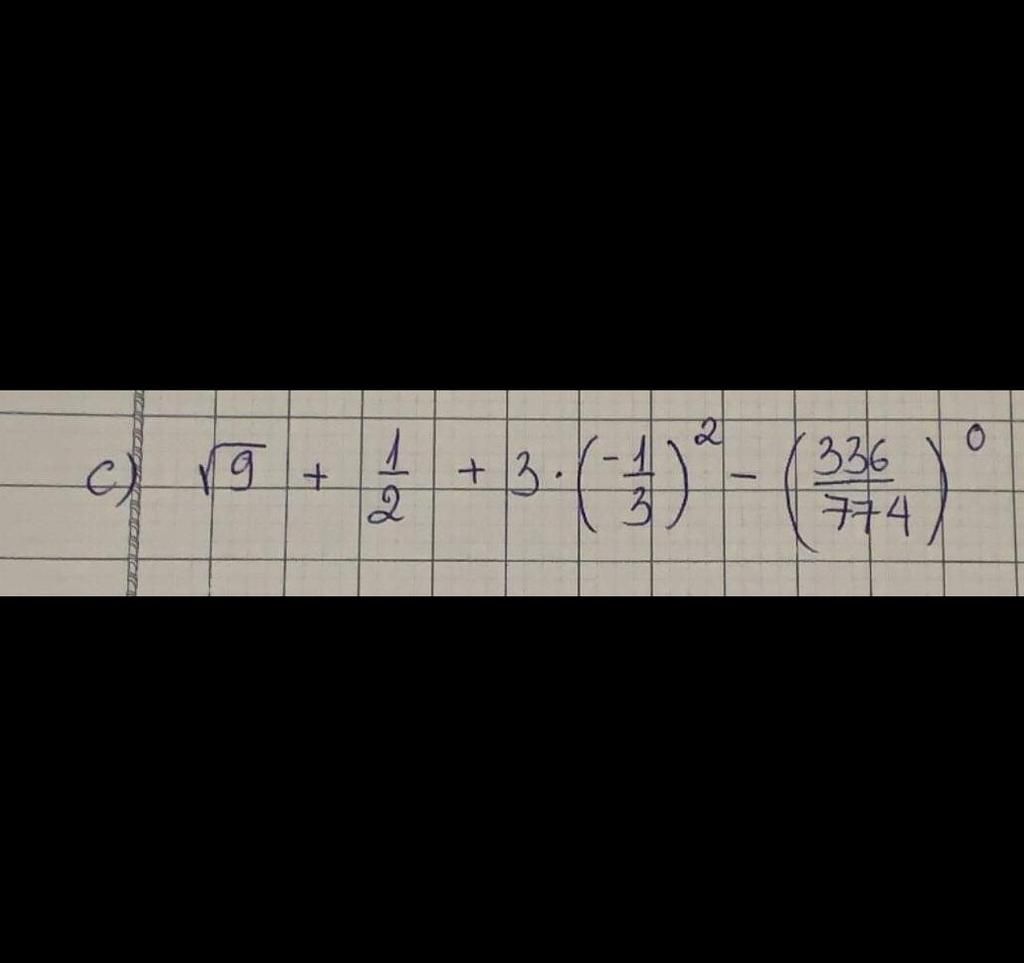 c) √9 + 1/2 + 3 · (-1/3)² - (336/774)⁰